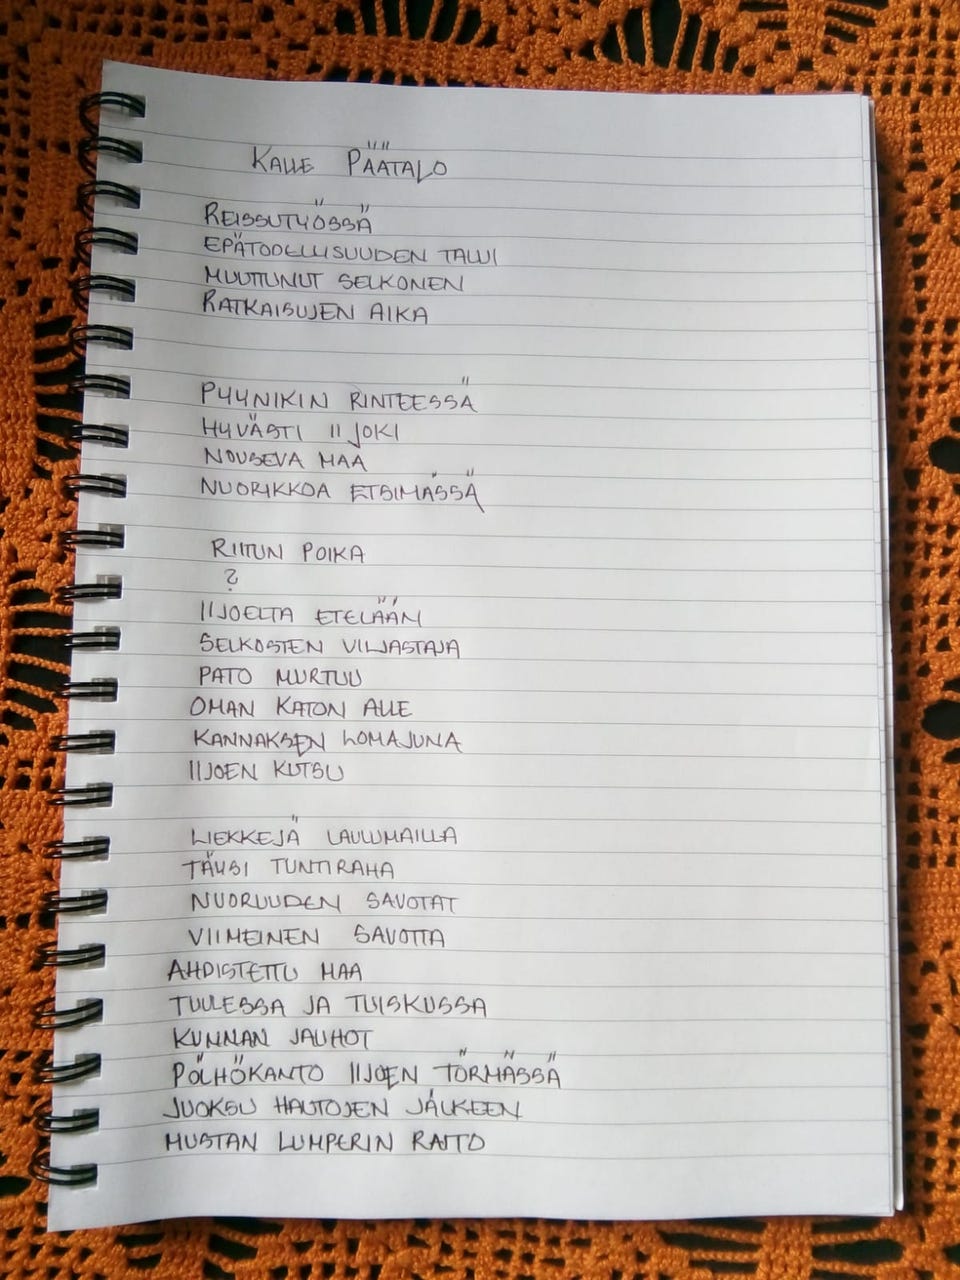 KALLE PÄÄTALO
REISSUTYÖSSÄ
EPÄTODELLISUUDEN TALVI
MUUTTUNUT SELKONEN
RATKAISUJEN AIKA
PYYNIKIN RINTEESSÄ
HYVÄSTI IIJOKI
NOUSEVA MAA
NUORIKKOA ETSIMÄSSÄ
RIITUN POIKA
?
IIJOELTA ETELÄÄN
SELKOSTEN VILJASTAJA
PATO MURTUU
OMAN KATON ALLE
KANNAKSEN LOMAJUNA
IIJOEN KUTSU
LIEKKEJÄ LAULUMAILLA
TÄYSI TUNTIRAHA
NUORUUDEN SAVOTAT
VIIMEINEN SAVOTTA
AHDISTETTU MAA
TUULESSA JA TUISKUSSA
KUNNAN JAUHOT
PÖLHÖKANTO IIJOEN TÖRMÄSSÄ
JUOKSU HAUTOJEN JÄLKEEN
MUSTAN LUMPERIN RAITO